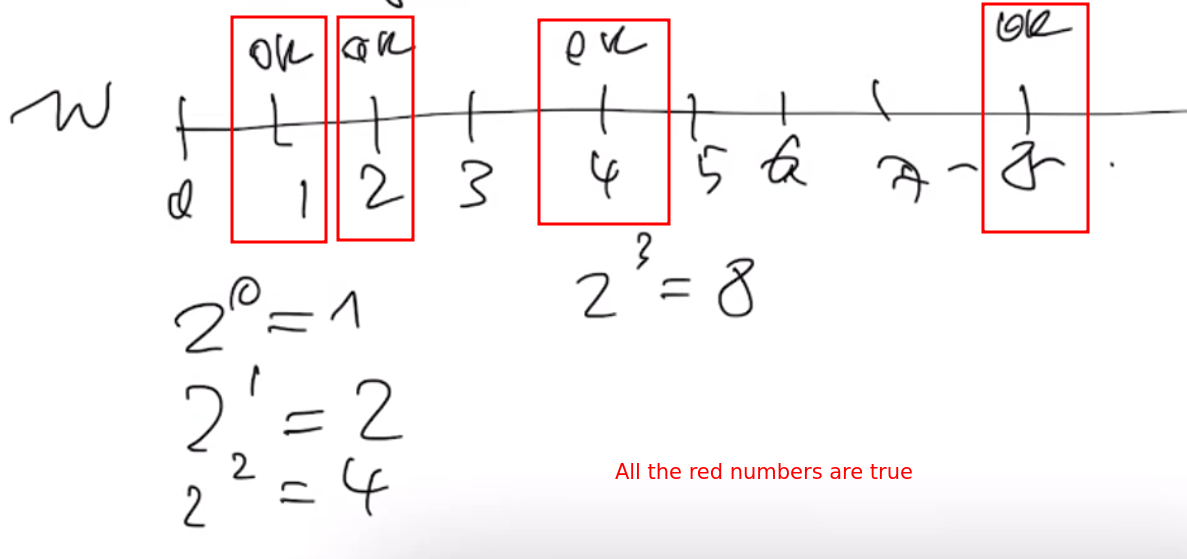 OK OK OK OK
W 0 1 2 3 4 5 6 7 - 8 .
2^3 = 8
2^0 = 1
2^1 = 2
2^2 = 4
All the red numbers are true